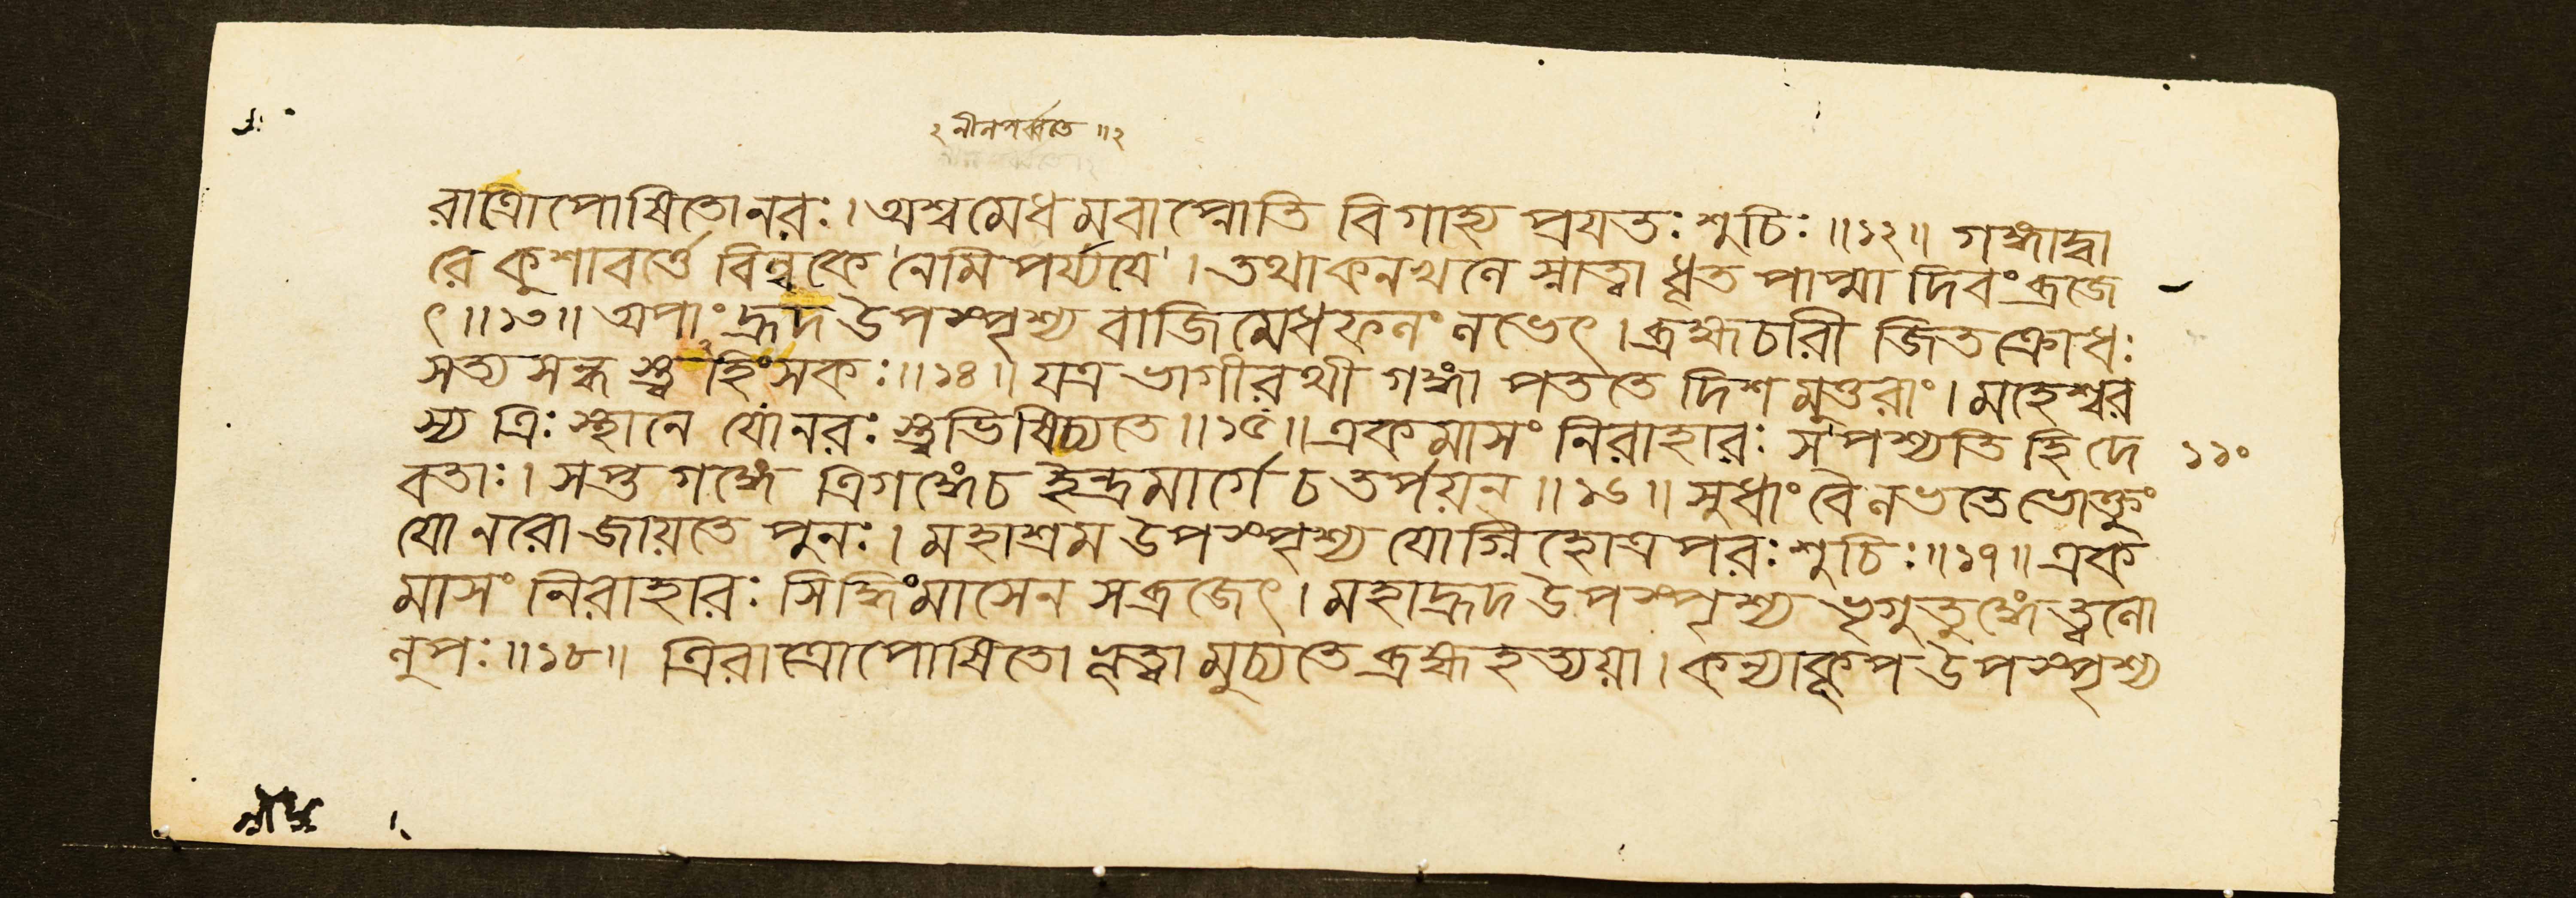 ২ নীলপর্ব্বতে ॥২
রাত্রোপোষিতোনরঃ । অশ্বমেধমবাপ্নোতি বিগাহ্য প্রযতঃ শুচিঃ ॥১২॥ গঙ্গাদ্বা
রে কুশাবর্ত্তে বিল্বকে নেমিপর্য্যযে । তথাকনখলে স্নাত্বা ধূত পাপ্মা দিবংব্রজে
ৎ ॥১৩॥ অপাং হ্রদ উপস্পৃশ্য বাজিমেধফলংলভেৎ । ব্রহ্মচারী জিতক্রোধঃ
সত্যসন্ধস্ত্বহিংসকঃ ॥১৪॥ যত্র ভাগীরথী গঙ্গা পততে দিশমুত্তরাং । মহেশ্বর
স্য ত্রিঃস্থানে যোনরঃ স্ত্বভিষিচ্যতে ॥১৫॥ একমাসং নিরাহারঃ সপশ্যতি হি দে ১১০
বতাঃ । সপ্তগঙ্গে ত্রিগঙ্গেচ ইন্দ্রমার্গে চ তর্পয়ন ॥১৬॥ সুধাং বৈলভতে ভোক্তুং
যো নরো জায়তে পুনঃ । মহাশ্রম উপস্পৃশ্য যোগ্নিহোত্রপরঃ শুচিঃ ॥১৭॥ এক
মাসং নিরাহারঃ সিদ্ধিংমাসেন সব্রজেৎ । মহাহ্রদ উপস্পৃশ্য ভৃগুতুঙ্গে ত্বলো
লুপঃ ॥১৮॥ ত্রিরাত্রোপোষিতো ভূত্বা মুচ্যতে ব্রহ্মহত্যয়া । কন্যাকূপ উপস্পৃশ্য